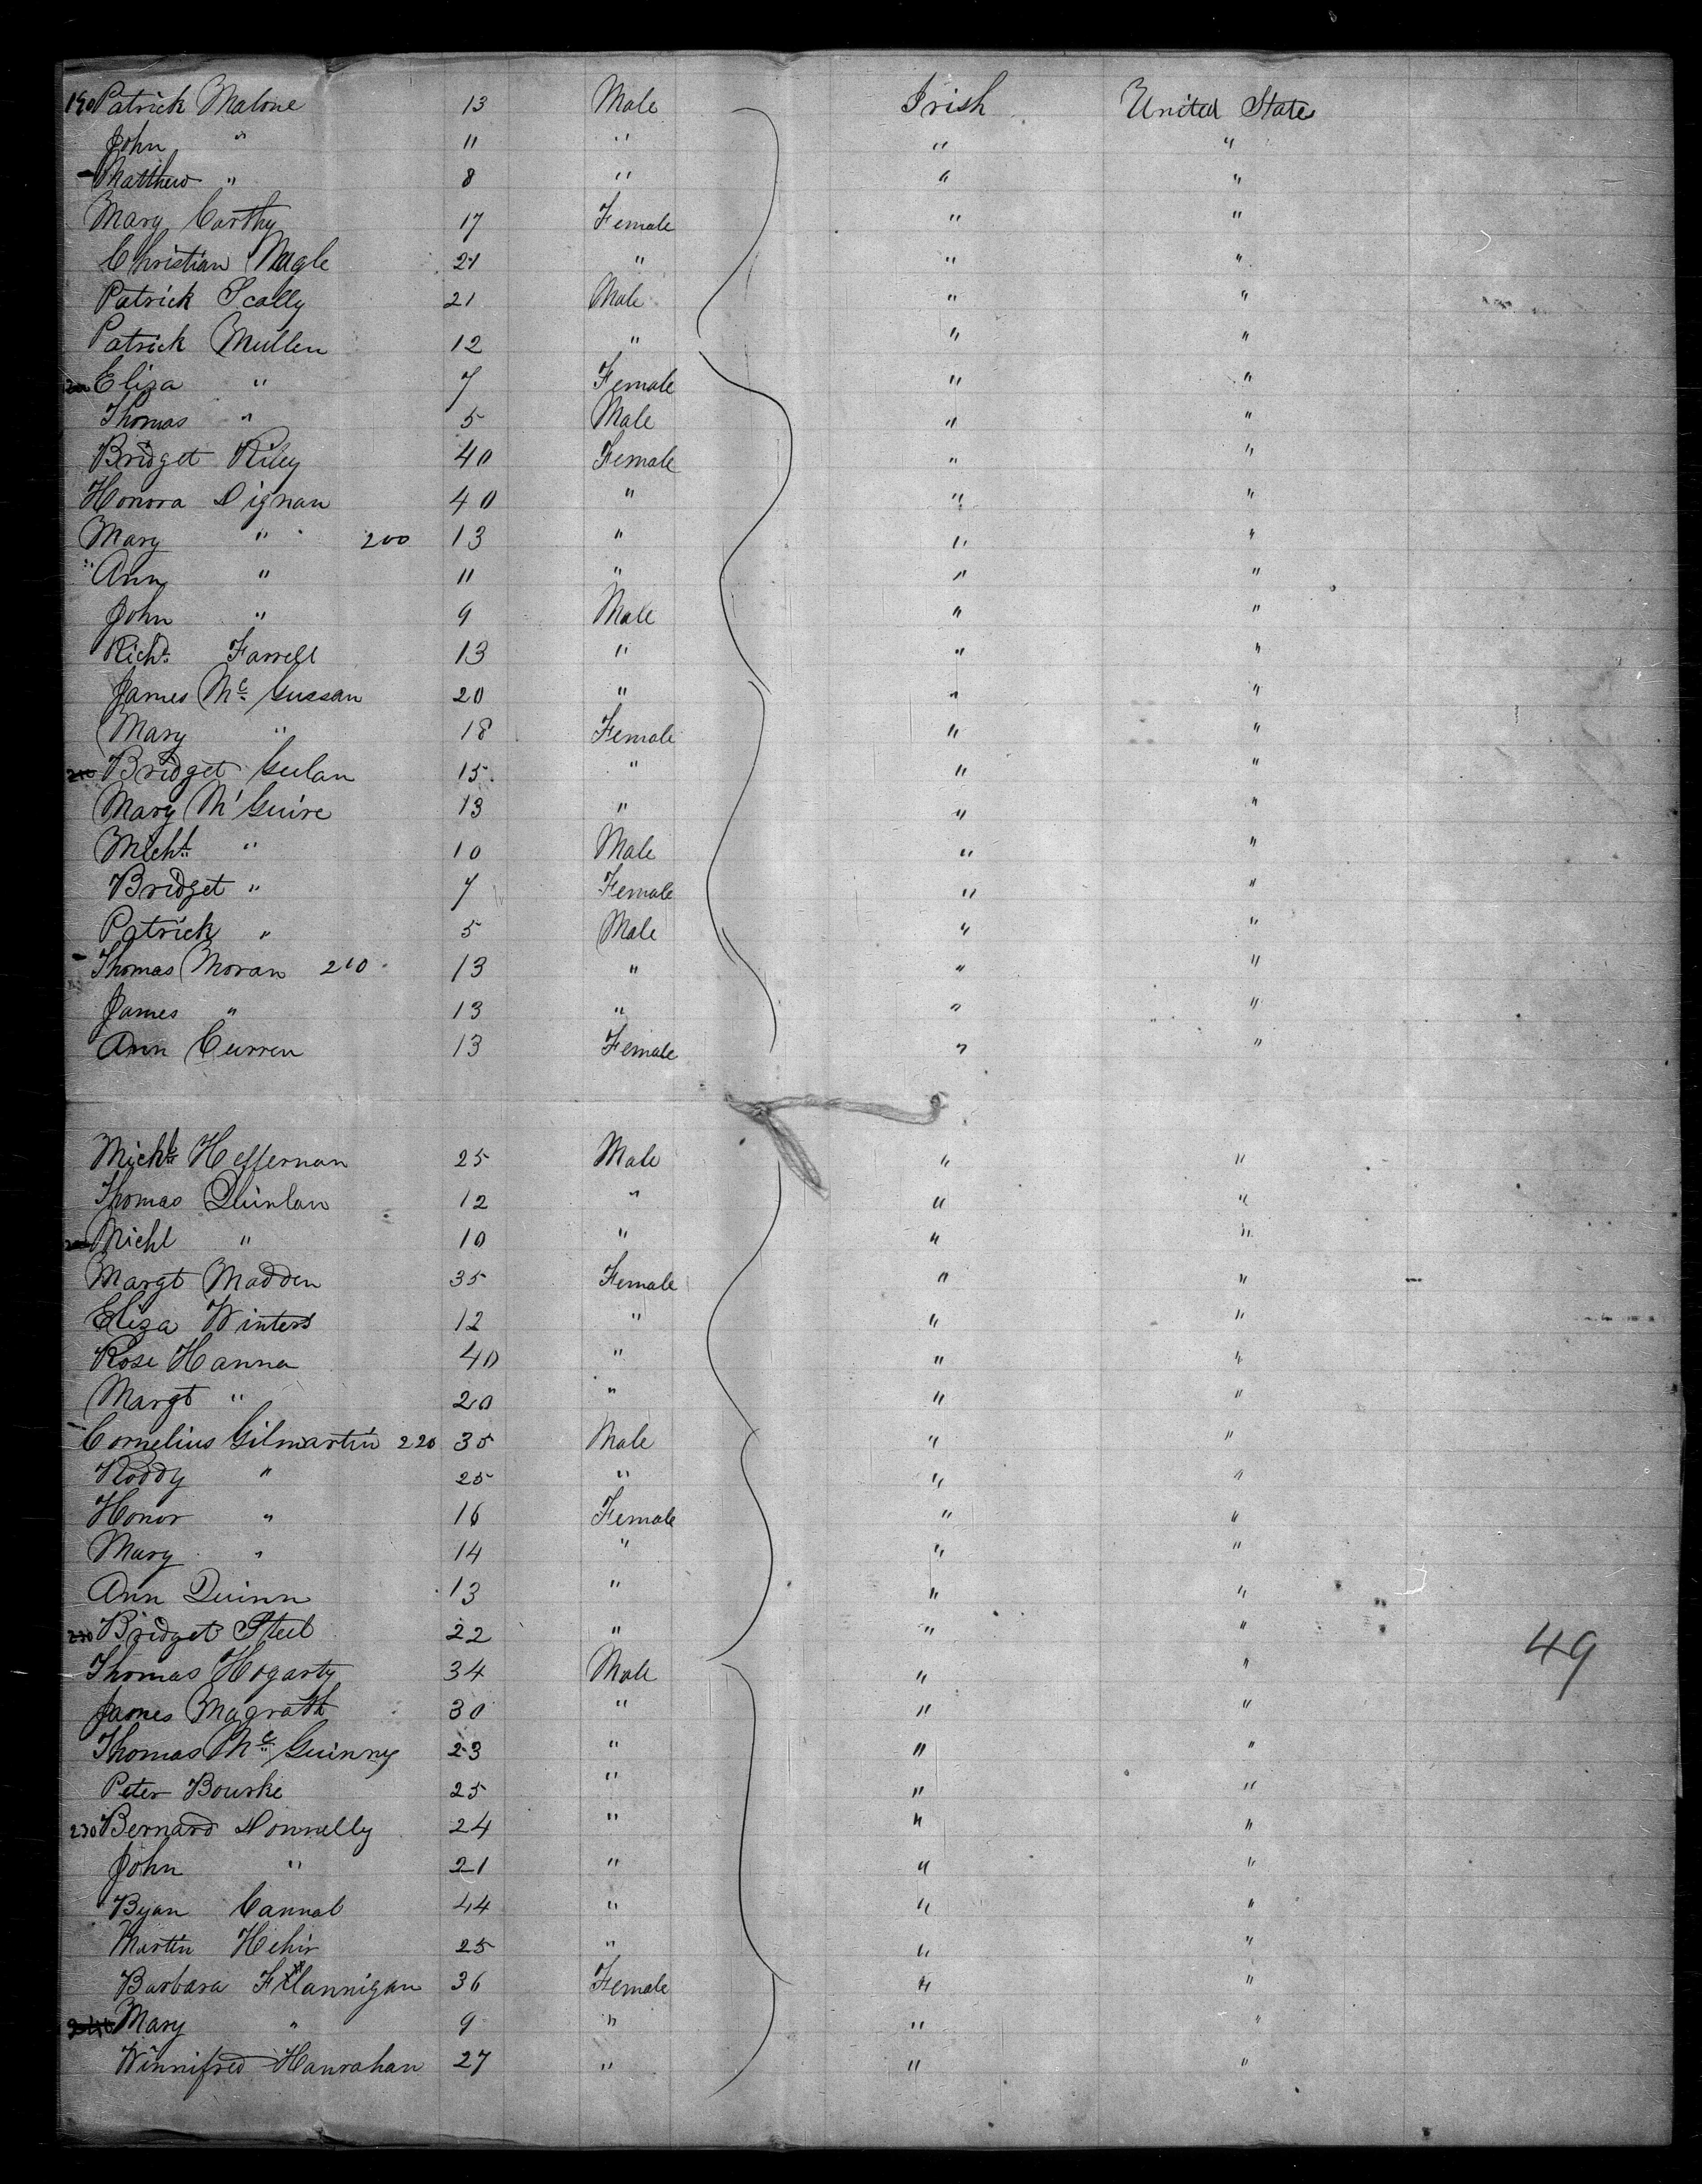 190 Patrick Malone 13 Male Irish United State
John " 11 " " "
Matthew " 8 " " "
Mary Carthy 17 Female " "
Christian Nagle 21 " " "
Patrick Scally 21 Male " "
Patrick Mullen 12 " " "
Eliza " 7 Female " "
Thomas " 5 Male " "
Bridget Riley 40 Female " "
Honora Dignan 40 " " "
Mary " 200 13 " " "
Ann " 11 " " "
John " 9 Male " "
Richd. Farrell 13 " " "
James Mc. Gussan 20 " " "
Mary " 18 Female " "
Bridget Geelan 15 " " "
Mary M'Guire 13 " " "
Michl. " 10 Male " "
Bridget " 7 Female " "
Patrick " 5 Male " "
Thomas Moran 210 13 " " "
James " 13 " " "
Ann Curren 13 Female " "
Michl. Heffernan 25 Male " "
Thomas Quinlan 12 " " "
Michl " 10 " " "
Margt Madden 35 Female " "
Eliza Winters 12 " " "
Rose Hanna 40 " " "
Margt " 20 " " "
Cornelius Gilmartin 220 35 Male " "
Roddy " 25 " " "
Honor " 16 Female " "
Mary " 14 " " "
Ann Quinn 13 " " "
230 Bridget Steel 22 " " "
49
Thomas Hogarty 34 Male " "
James Magrath 30 " " "
Thomas Mc. Guinny 23 " " "
Peter Bourke 25 " " "
230 Bernard Donnelly 24 " " "
John " 21 " " "
Byan Cannal 44 " " "
Martin Hehir 25 " " "
Barbara Flannigan 36 Female " "
Mary " 9 " " "
Winnifred Hanrahan 27 " " "